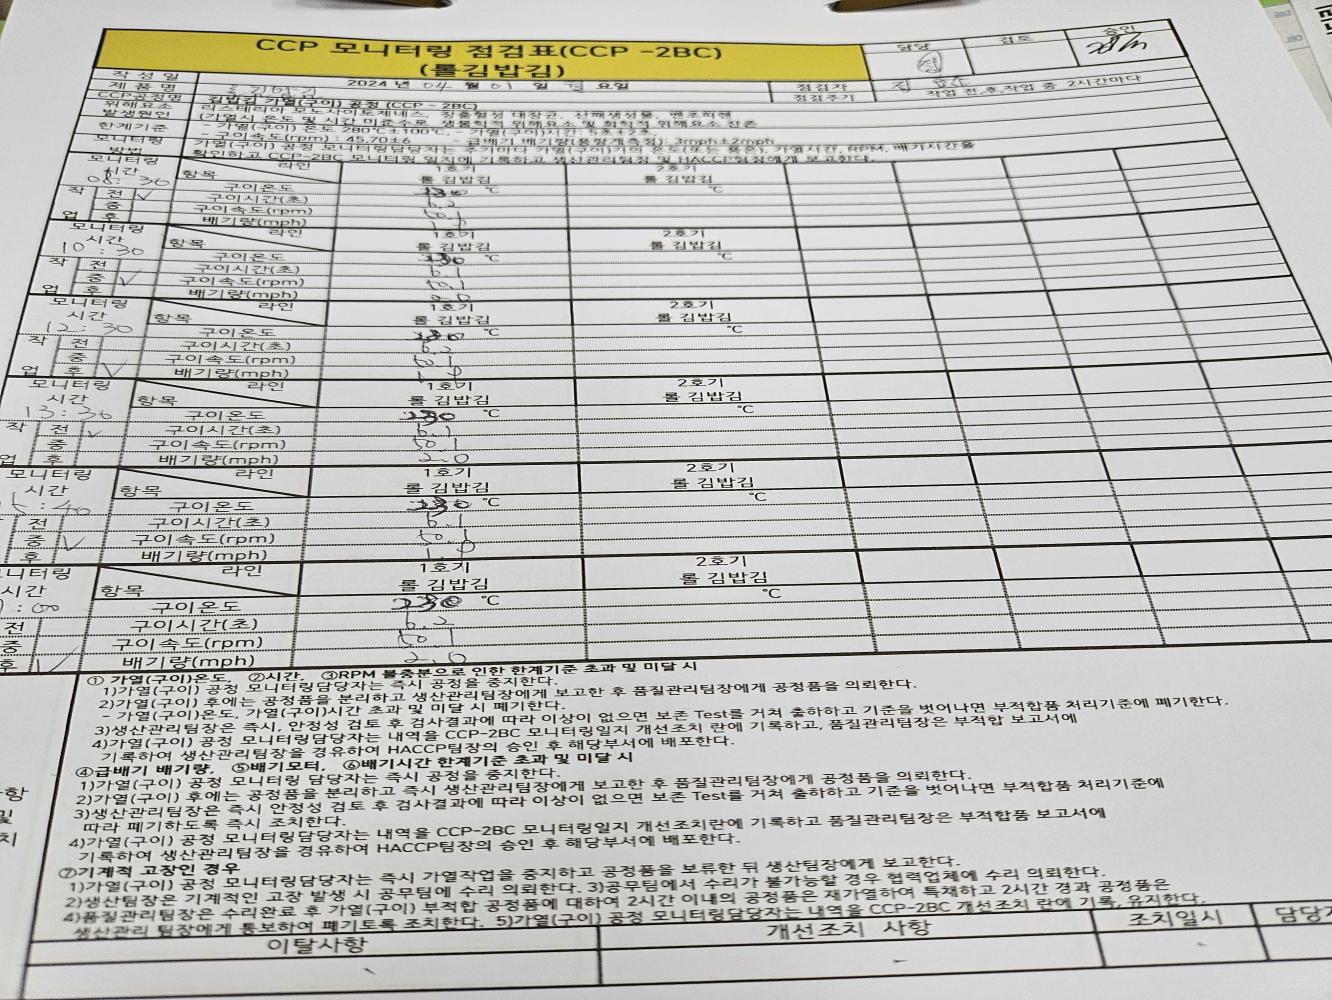 CCP 모니터링 점검표(CCP -2BC)
(롤김밥김)
담당 검토 승인
작성일 2024 년 04 월 01 일 월 요일 점검자
제품명 점검주기 작업 전,후,작업 중 2시간마다
CCP공정명 김밥김 가열(구이) 공정 (CCP - 2BC)
위해요소 리스테리아 모노사이토제네스, 장출혈성 대장균, 산패생성물, 벤조피렌
발생원인 (가열시 온도 및 시간 미료수로 생물학적 위해요소 및 화학적 위해요소 잔존
한계기준 - 가열(구이) 온도 280℃±100℃, - 가열(구이)시간: 5초±2초,
- 구이속도(rpm) : 45.70±6 - 급배기 배기량(풍량계측정): 3mph±2mph
모니터링 방법 가열(구이) 공정 모니터링담당자는 주기마다 가열(구이)기의 온도(또는 품온), 가열시간, RPM, 배기시간을
확인하고 CCP-2BC 모니터링 일지에 기록하고 생산관리팀장 및 HACCP팀장에게 보고한다.
모니터링 라인 1호기 2호기
시간 항목 롤 김밥김 롤 김밥김
08:30 구이온도 ℃ ℃
작 전 ✓ 구이시간(초) 6.2
중 구이속도(rpm) 50.1
업 후 배기량(mph) 1.8
모니터링 라인 1호기 2호기
시간 항목 롤 김밥김 롤 김밥김
10:30 구이온도 230 ℃ ℃
작 전 구이시간(초) 6.1
중 ✓ 구이속도(rpm) 50.1
업 후 배기량(mph) 2.0
모니터링 라인 1호기 2호기
시간 항목 롤 김밥김 롤 김밥김
12:30 구이온도 230 ℃ ℃
작 전 구이시간(초) 6.2
중 구이속도(rpm) 50.1
업 후 ✓ 배기량(mph) 1.8
모니터링 라인 1호기 2호기
시간 항목 롤 김밥김 롤 김밥김
13:30 구이온도 230 ℃ ℃
작 전 ✓ 구이시간(초) 6.1
중 구이속도(rpm) 50.1
업 후 배기량(mph) 2.0
모니터링 라인 1호기 2호기
시간 항목 롤 김밥김 롤 김밥김
5:40 구이온도 230 ℃ ℃
전 구이시간(초) 6.1
중 ✓ 구이속도(rpm) 50.1
후 배기량(mph) 1.8
니터링 라인 1호기 2호기
시간 항목 롤 김밥김 롤 김밥김
:00 구이온도 230 ℃ ℃
전 구이시간(초) 6.2
중 구이속도(rpm) 50.1
후 ✓ 배기량(mph) 2.0
① 가열(구이)온도, ②시간, ③RPM 불충분으로 인한 한계기준 초과 및 미달 시
1)가열(구이) 공정 모니터링담당자는 즉시 공정을 중지한다.
2)가열(구이) 후에는 공정품을 분리하고 생산관리팀장에게 보고한 후 품질관리팀장에게 공정품을 의뢰한다.
- 가열(구이)온도, 가열(구이)시간 초과 및 미달 시 폐기한다.
3)생산관리팀장은 즉시, 안정성 검토 후 검사결과에 따라 이상이 없으면 보존 Test를 거쳐 출하하고 기준을 벗어나면 부적합품 처리기준에 폐기한다.
4)가열(구이) 공정 모니터링담당자는 내역을 CCP-2BC 모니터링일지 개선조치 란에 기록하고, 품질관리팀장은 부적합 보고서에
기록하여 생산관리팀장을 경유하여 HACCP팀장의 승인 후 해당부서에 배포한다.
④급배기 배기량, ⑤배기모터, ⑥배기시간 한계기준 초과 및 미달 시
1)가열(구이) 공정 모니터링 담당자는 즉시 공정을 중지한다.
2)가열(구이) 후에는 공정품을 분리하고 즉시 생산관리팀장에게 보고한 후 품질관리팀장에게 공정품을 의뢰한다.
3)생산관리팀장은 즉시 안정성 검토 후 검사결과에 따라 이상이 없으면 보존 Test를 거쳐 출하하고 기준을 벗어나면 부적합품 처리기준에
따라 폐기하도록 즉시 조치한다.
4)가열(구이) 공정 모니터링담당자는 내역을 CCP-2BC 모니터링일지 개선조치란에 기록하고 품질관리팀장은 부적합품 보고서에
기록하여 생산관리팀장을 경유하여 HACCP팀장의 승인 후 해당부서에 배포한다.
⑦기계적 고장인 경우
1)가열(구이) 공정 모니터링담당자는 즉시 가열작업을 중지하고 공정품을 보류한 뒤 생산팀장에게 보고한다.
2)생산팀장은 기계적인 고장 발생 시 공무팀에 수리 의뢰한다. 3)공무팀에서 수리가 불가능할 경우 협력업체에 수리 의뢰한다.
4)품질관리팀장은 수리완료 후 가열(구이) 부적합 공정품에 대하여 2시간 이내의 공정품은 재가열하여 특채하고 2시간 경과 공정품은
생산관리 팀장에게 통보하여 폐기토록 조치한다. 5)가열(구이) 공정 모니터링담당자는 내역을 CCP-2BC 개선조치 란에 기록, 유지한다.
이탈사항 개선조치 사항 조치일시 담당자